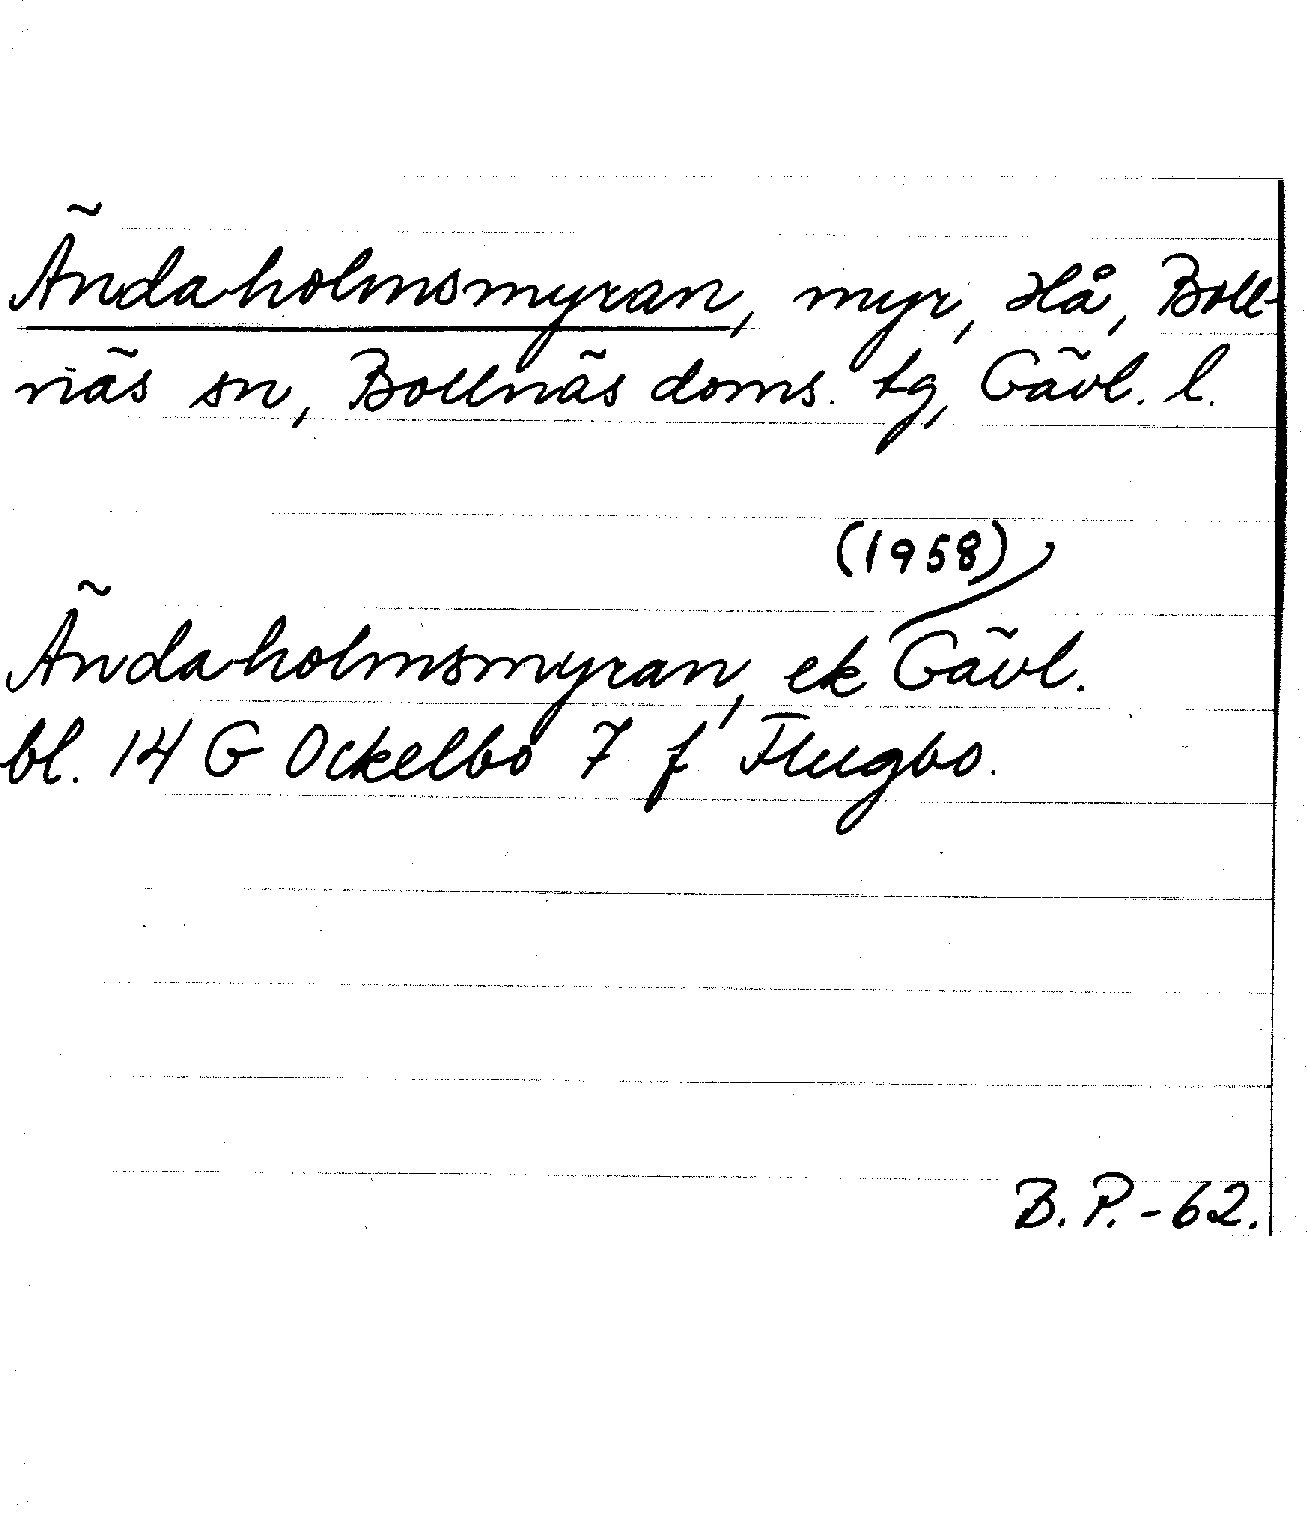 Ändaholmsmyran, myr, Hå, Boll-
näs sn, Bollnäs doms. tg, Gävl. l.
(1958)
Ändaholmsmyran, ek Gävl.
bl. 14 G Ockelbo 7 f Flugbo.
B. P. - 62.